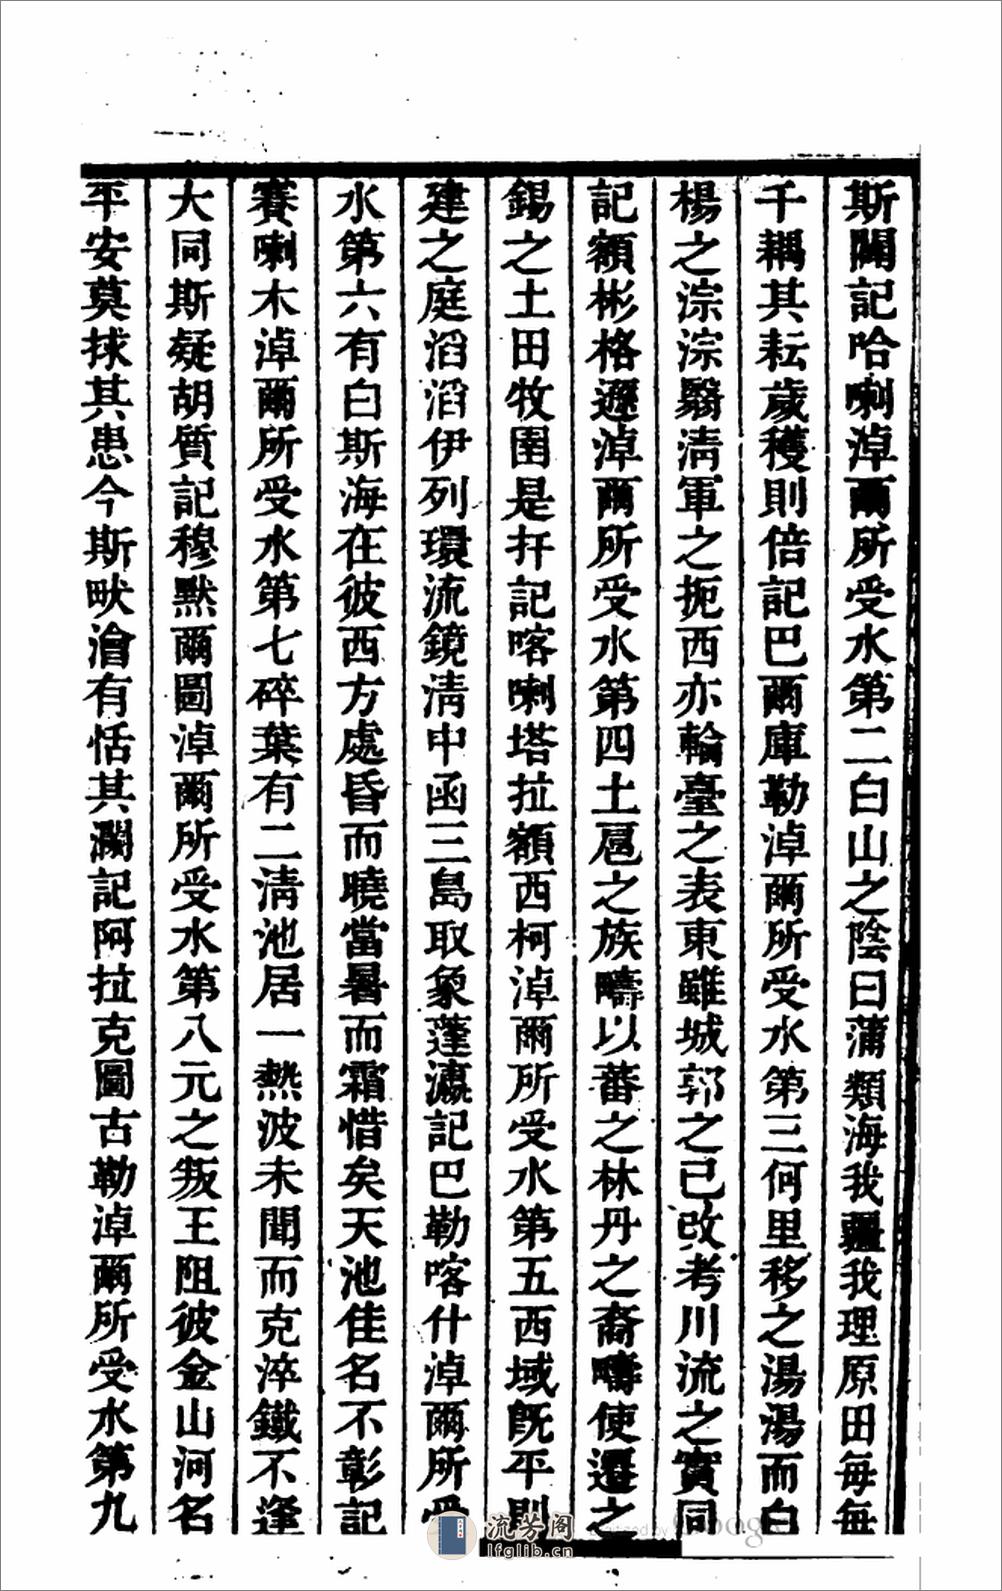 斯闢記哈喇淖爾所受水第二白山之陰曰蒲類海我疆我理原田每每
千耦其耘歲穫則倍記巴爾庫勒淖爾所受水第三何里移之湯湯而白
楊之淙淙翳清軍之扼西亦輪臺之表東雖城郭之已改考川流之實同
記額彬格遜淖爾所受水第四土扈之族疇以蕃之林丹之裔疇使遷之
錫之土田牧圉是扞記喀喇塔拉額西柯淖爾所受水第五西域旣平則
建之庭滔滔伊列環流鏡清中函三島取象蓬瀛記巴勒喀什淖爾所受
水第六有白斯海在彼西方處昏而曉當暑而霜惜矣天池佳名不彰記
賽喇木淖爾所受水第七碎葉有二清池居一熱波未聞而克淬鐵不逢
大同斯疑胡質記穆默爾圖淖爾所受水第八元之叛王阻彼金山河名
平安莫捄其患今斯畎澮有恬其瀾記阿拉克圖古勒淖爾所受水第九
流芳阁
lfglib.cn